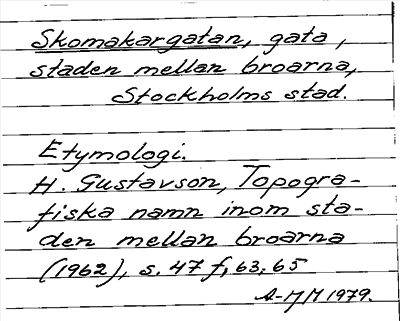 Skomakargatan, gata,
staden mellan broarna,
Stockholms stad.
Etymologi.
H. Gustavson, Topogra-
fiska namn inom sta-
den mellan broarna
(1962), s. 47 f, 63, 65
A-MM 1979.